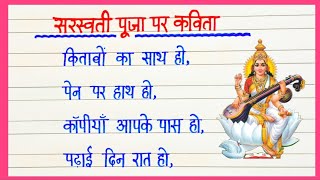 सरस्वती पूजा पर कविता
किताबों का साथ हो,
पेन पर हाथ हो,
कॉपीयाँ आपके पास हो,
पढ़ाई दिन रात हो,